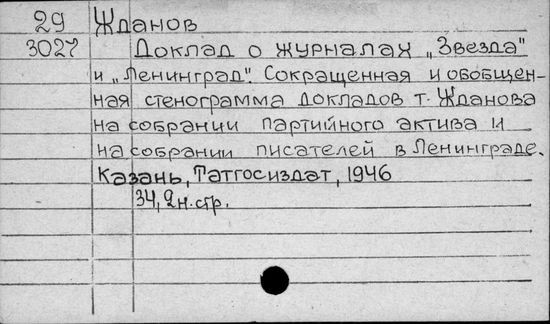 29 Жданов
3027 Доклад о журналах „Звезда"
и „Ленинград". Сокращенная и обобщен-
ная стенограмма докладов т. Жданова
на собрании партийного актива и
на собрании писателей в Ленинграде.
Казань, Татгосиздат, 1946
34, 2 н. стр.